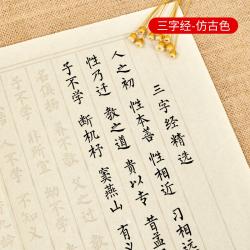 三字经-仿古色
三字经精选
人之初 性本善 性相近 习相远
性乃迁 教之道 贵以专 昔孟
子不学 断机杼 窦燕山 有义